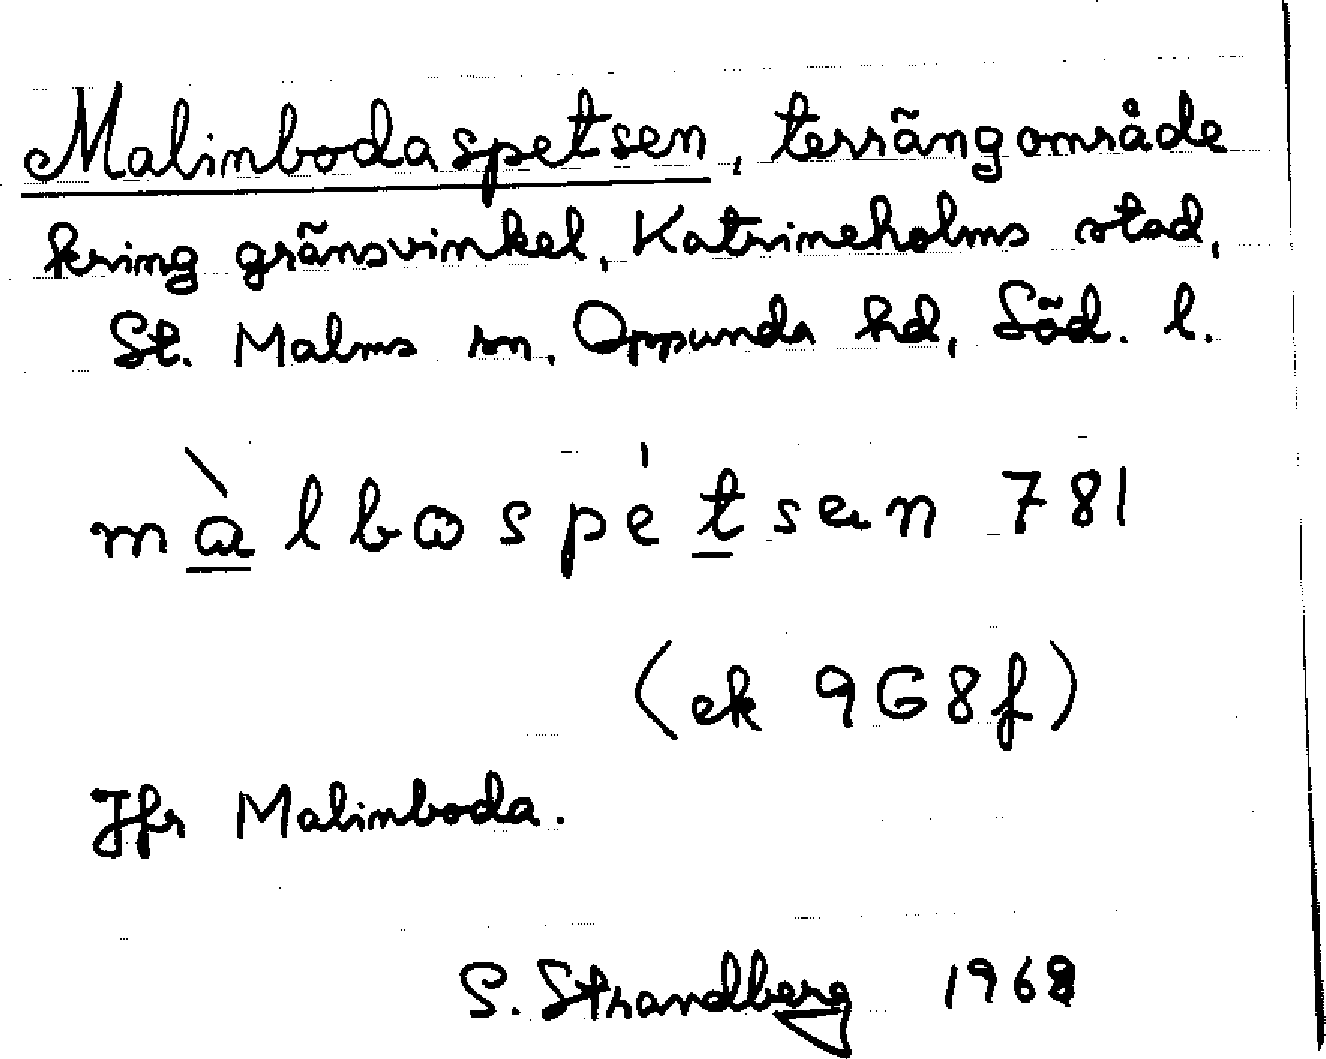 Malinbodaspetsen, terrängområde
kring gränsvinkel, Katrineholms stad,
St. Malms sn, Oppunda hd, Söd. l.
màlbɷspe̍tsen 781
(ek 9G8f)
Jfr Malinboda.
S. Strandberg 1968